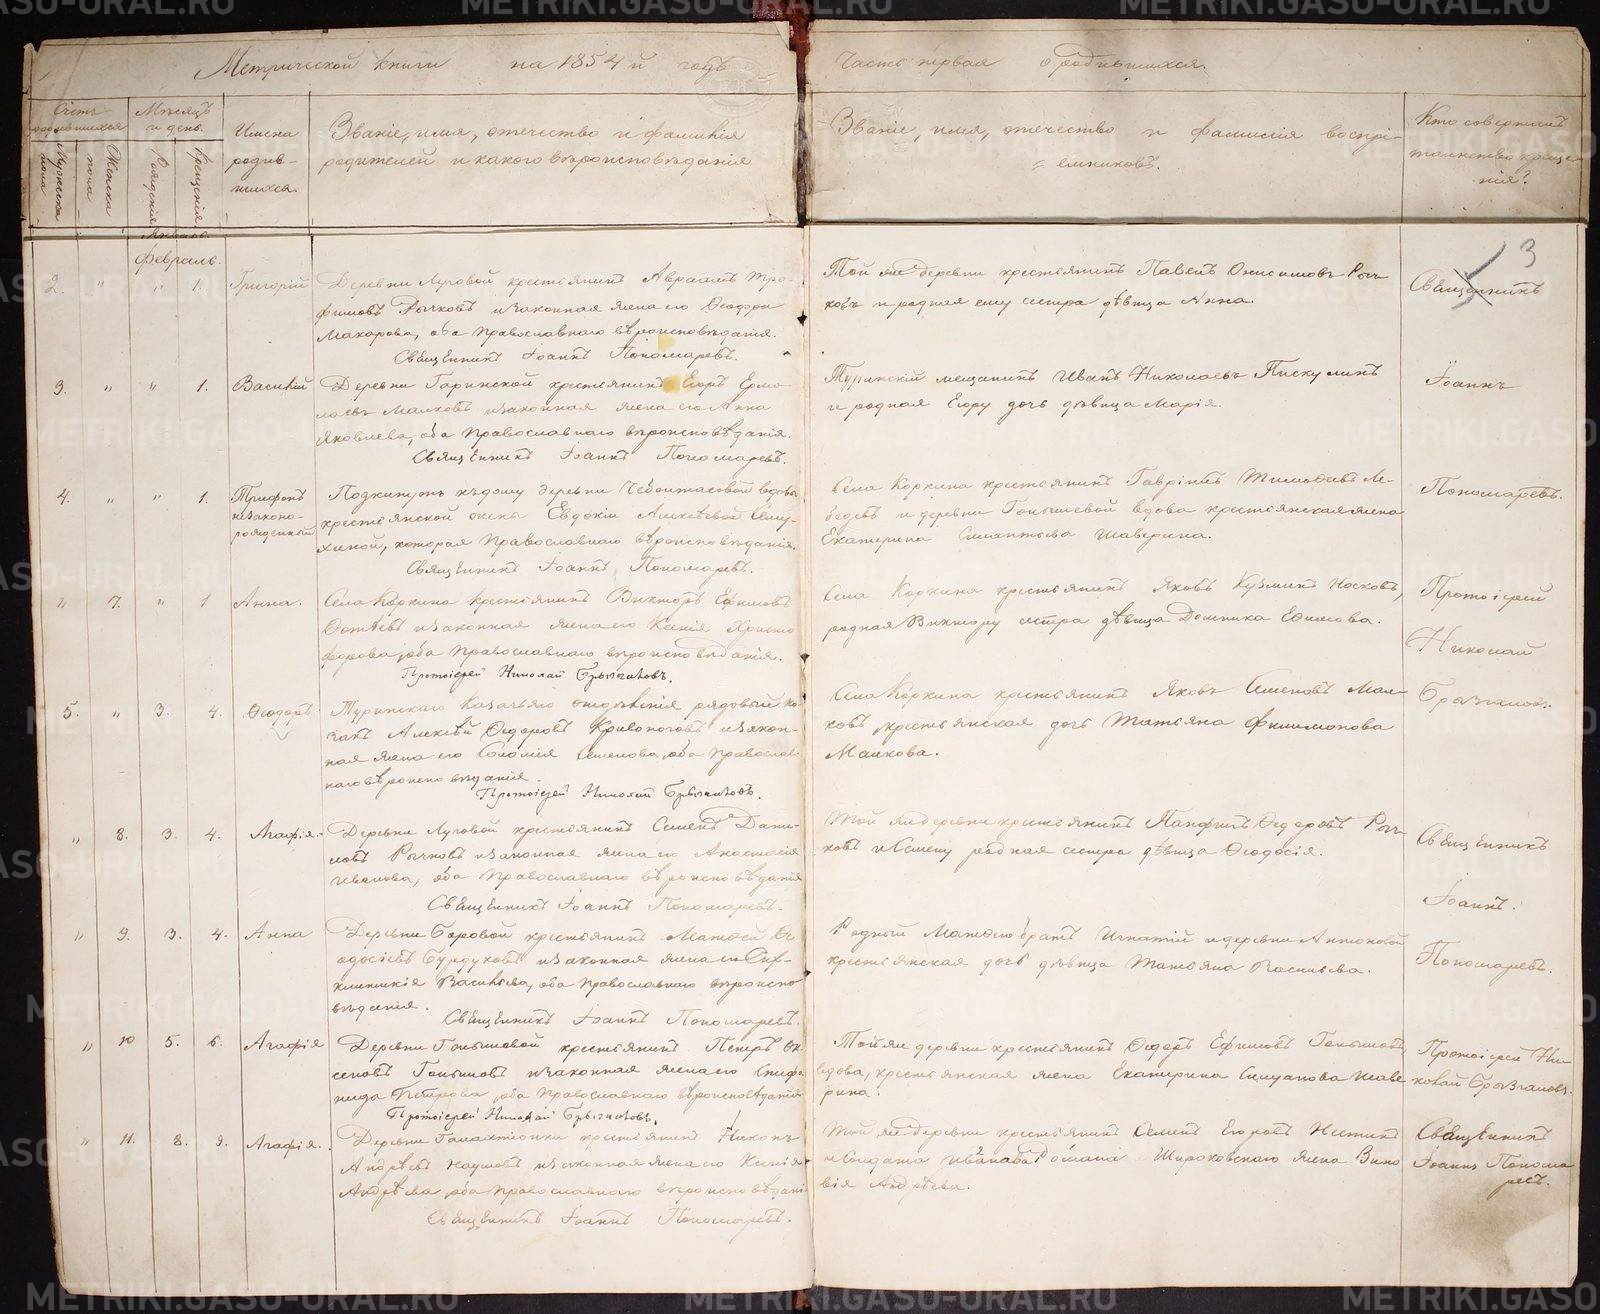 Метрической книги на 1854й годъ
Часть первая о родившихся.
Счетъ родившихся
Мужеска пола
Женска пола
Мѣсяцъ и день.
Рожденія
Крещенія
Имена родив-
шихся.
Званіе, имя, отчество и фамилія
родителей и какого вѣроисповѣданія
Званіе, имя, отчество и фамилія воспрі-
емниковъ.
Кто совершалъ
таинство креще-
нія?
Февраль.
3
2. " " 1. Григорій
Деревни Луговой крестьянинъ Авраамъ Тро-
фимовъ Рычковъ и законная жена его Ѳеодора
Макарова, оба православнаго вѣроисповѣданія.
Священникъ Іоаннъ Пономаревъ.
Той же деревни крестьянинъ Павелъ Онисимовъ Рыч-
ковъ и родная ему сестра дѣвица Анна.
Священникъ
3. " " 1. Василій
Деревни Гаринской крестьянинъ Егоръ Ермо-
лаевъ Малковъ и законная жена его Анна
Яковлева, оба православнаго вѣроисповѣданія.
Священникъ Іоаннъ Пономаревъ.
Туринскій мещанинъ Иванъ Николаевъ Пискулинъ
и родная Егору дочь дѣвица Марія.
Іоаннъ
4. " " 1. Трифонъ
незаконо-
рожденный
Подкинутъ къ дому деревни вдовы
крестьянской жены Евдокіи Алексѣевой
которая православнаго вѣроисповѣданія.
Священникъ Іоаннъ Пономаревъ.
Села Коркина крестьянинъ Гавріилъ Тимофѣевъ Ле-
бедевъ и деревни Гонышевой вдова крестьянская жена
Екатерина Шаверина.
Пономаревъ.
" 7. " 1 Анна.
Села Коркина крестьянинъ Викторъ Ефимовъ
и законная жена его Ксенія Христо
форова, оба православнаго вѣроисповѣданія.
Протоіерей Николай Брызгаловъ.
Села Коркина крестьянинъ Яковъ Кузминъ Носковъ,
родная Виктору сестра дѣвица Домника Ефимова.
Протоіерей
Николай
5. " 3. 4. Ѳеодоръ.
Туринскаго Казачьяго отдѣленія рядовый ка-
закъ Алексѣй Ѳедоровъ Кривоноговъ и закон-
ная жена его Соломія Семенова, оба православ-
наго вѣроисповѣданія.
Протоіерей Николай Брызгаловъ.
Села Коркина крестьянинъ Яковъ Семеновъ Мал-
ковъ, крестьянская дочь Татьяна Филимонова
Малкова.
Брызгаловъ.
" 8. 3. 4. Агафія.
Деревни Луговой крестьянинъ Семенъ Дани-
ловъ Рычковъ и законная жена его Анастасія
Иванова, оба православнаго вѣроисповѣданія
Священникъ Іоаннъ Пономаревъ.
Той же деревни крестьянинъ Панфилъ Ѳедоровъ Рыч-
ковъ и Семену родная сестра дѣвица Ѳеодосія.
Священникъ
Іоаннъ.
" 9. 3. 4. Анна
Деревни Боровой крестьянинъ Матвей Ѳе-
одосіевъ Бурдуковъ и законная жена его
Васильева, оба православнаго вѣроиспо-
вѣданія.
Священникъ Іоаннъ Пономаревъ.
Родный Матвею братъ Игнатій и деревни Антоновой
крестьянская дочь дѣвица Татьяна Васильева.
Пономаревъ.
" 10 5. 6. Агафія
Деревни Гонышевой крестьянинъ Петръ
Гонышевъ и законная жена его Степа-
нида Петрова, оба православнаго вѣроисповѣданія
Протоіерей Николай Брызгаловъ.
Той же деревни крестьянинъ Ѳедоръ Ефимовъ Гонышевъ,
вдова, крестьянская жена Екатерина Шаве-
рина.
Протоіерей Ни-
колай Брызгаловъ.
" 11. 8. 9. Агафія.
Деревни Галактіонки крестьянинъ Никонъ
Андреевъ Наумовъ и законная жена его Ксенія
Андреева, оба православнаго вѣроисповѣданія
Священникъ Іоаннъ Пономаревъ.
Той же деревни крестьянинъ Семенъ Егоровъ
и Солдата Романа Широковскаго жена
Андреева.
Священникъ
Іоаннъ Понома
ревъ.
METRIKI.GASO-URAL.RU